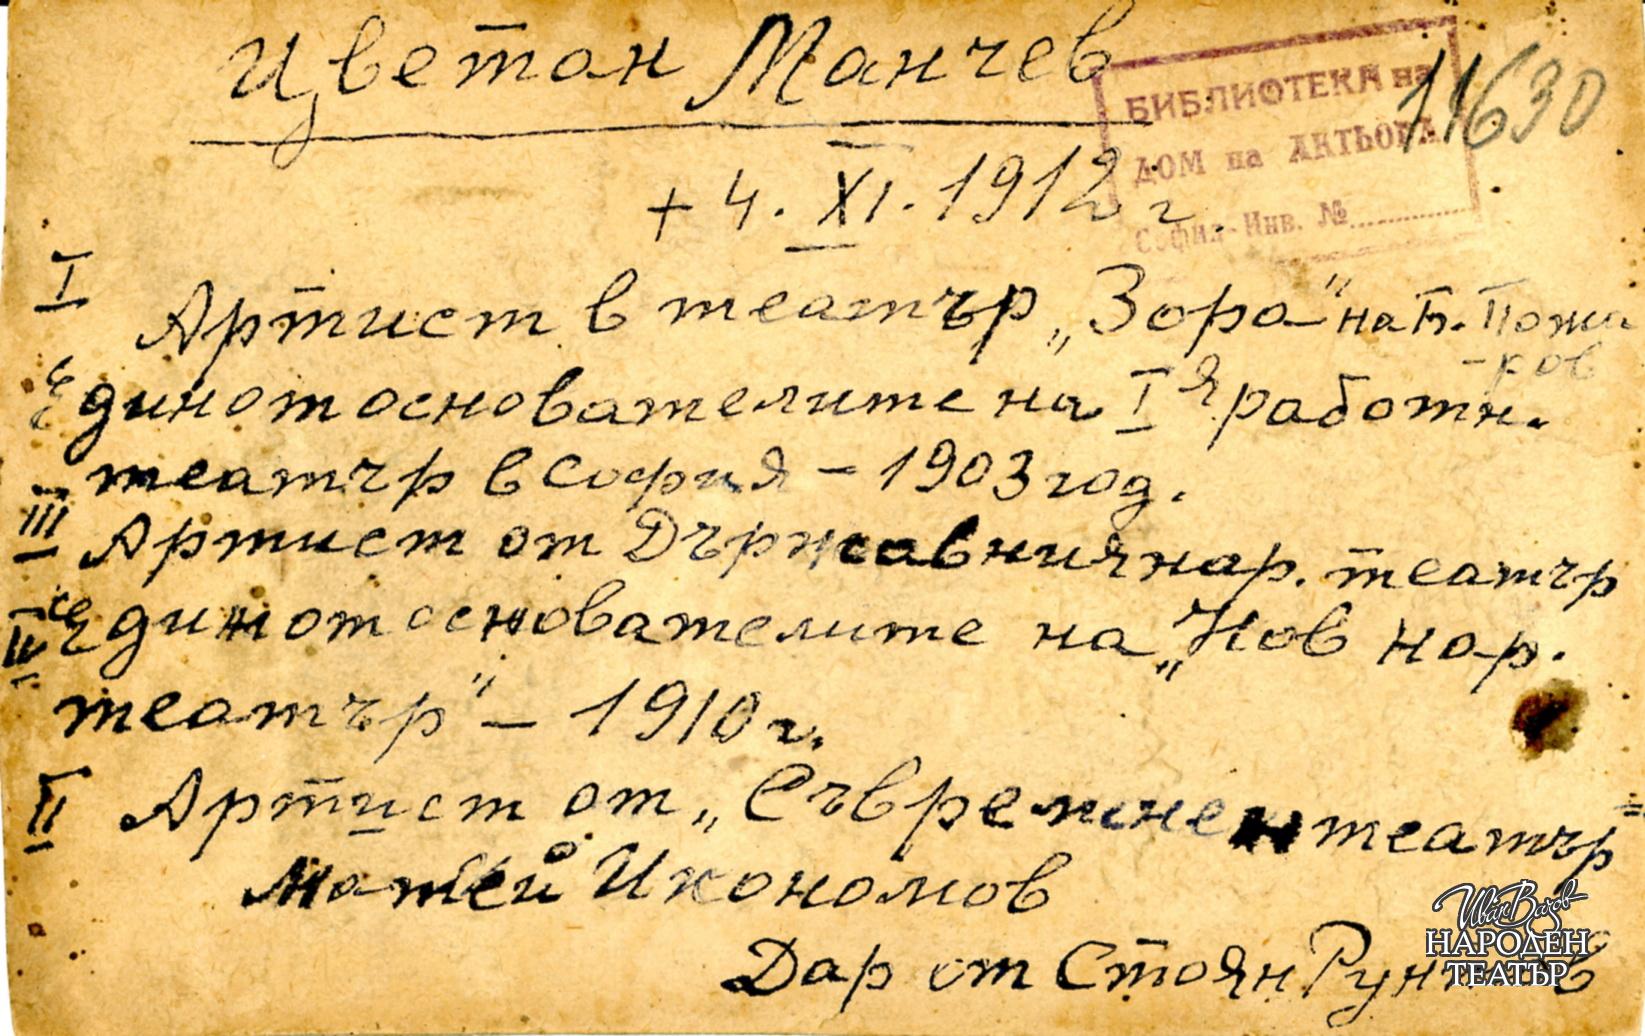 Цветан Манчев
11630
БИБЛИОТЕКА на
ДОМ на АКТЬОРА
София - Инв. №
+ 4. XI. 1912 г.
I
Артист в театър „Зора" на Б. Пожа
-ров
Един от основателите на Iя работн.
театър в София – 1903 год.
III
Артист от Държавния нар. театър
Един от основателите на „Нов нар.
театър" – 1910 г.
II
Артист от „Съвременен театър"
Матей Икономов
Дар от Стоян
Иван Вазов
НАРОДЕН
ТЕАТЪР